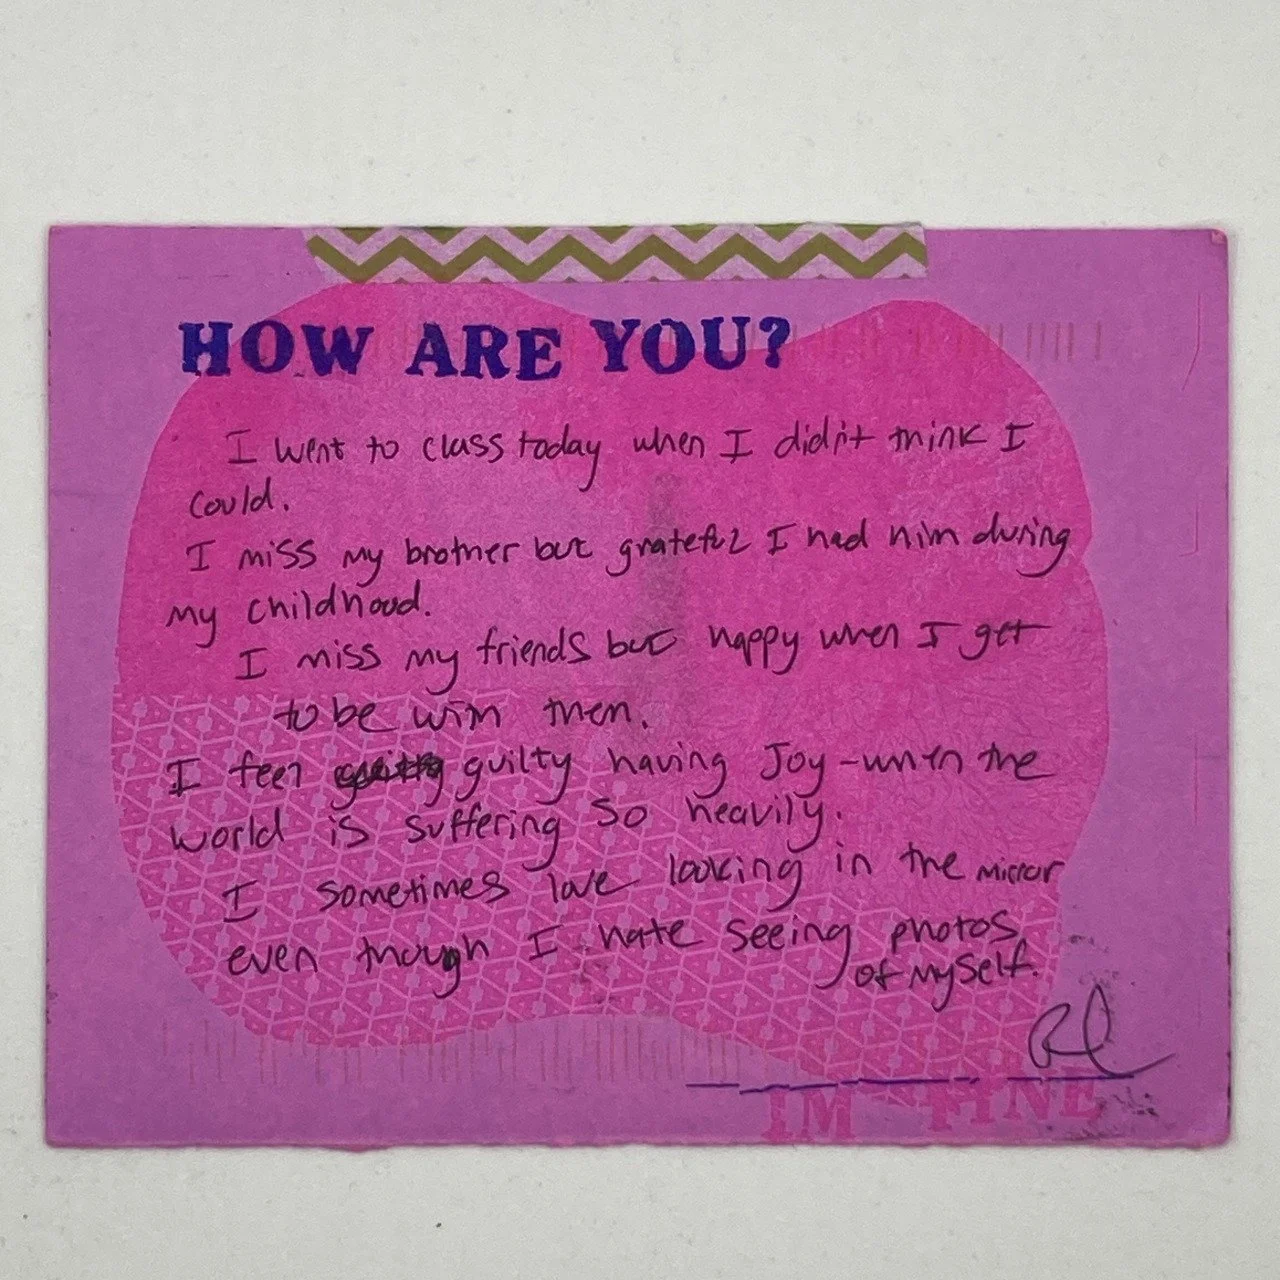 HOW ARE YOU?
I went to class today when I didn't think I
could.
I miss my brother but grateful I had him during
my childhood.
I miss my friends but happy when I get
to be with them.
I feel guilty having Joy - when the
world is suffering so heavily.
I sometimes love looking in the mirror
even though I hate seeing photos
of myself.
IM FINE